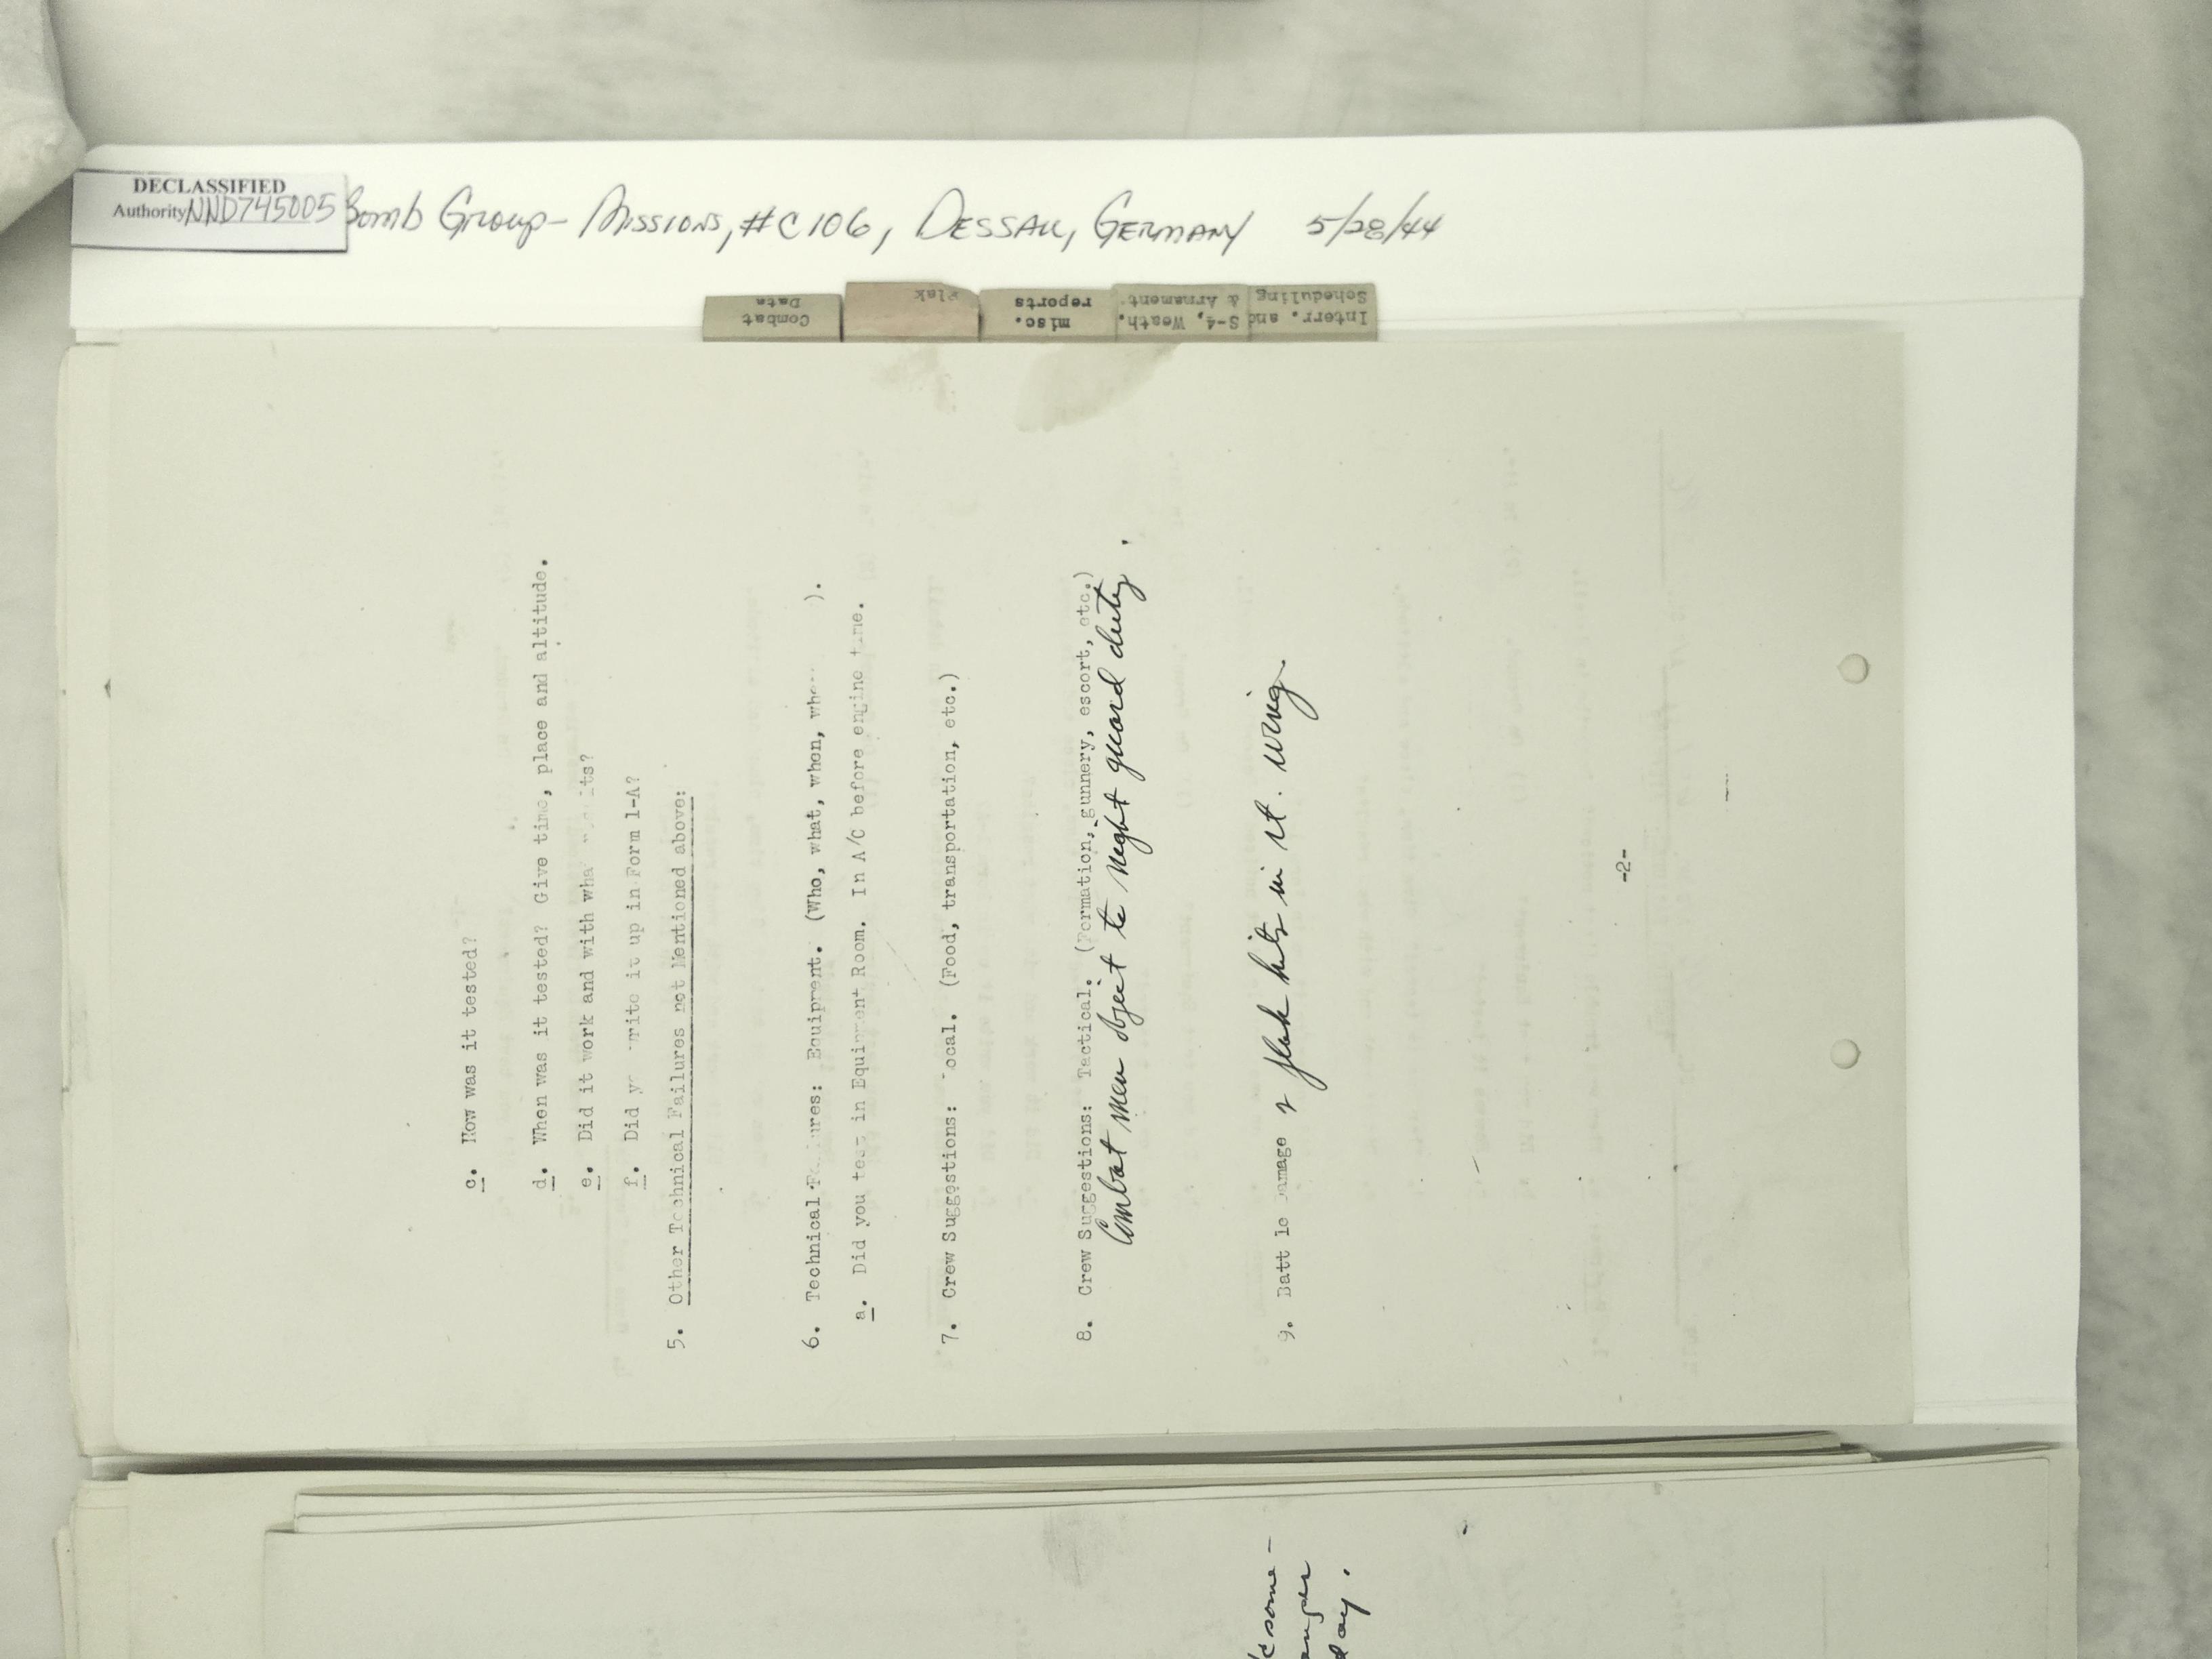 DECLASSIFIED
Authority NND745005
Bomb Group - Missions, #C106, Dessau, Germany 5/28/44
Combat
Data
Flak
misc.
reports
S-4, Weath.
& Armament
Interr. and
Scheduling
c. How was it tested?
d. When was it tested? Give time, place and altitude.
e. Did it work and with
f. Did write it up in Form 1-A?
5. Other Technical Failures not Mentioned above:
6. Technical Equipment. (Who, what, when, ).
a. Did you test in Equipment Room. In A/C before engine time.
7. Crew Suggestions: ocal. (Food, transportation, etc.)
8. Crew Suggestions: Tactical. (Formation, gunnery, escort, etc.)
Combat men object to night guard duty.
9. Batt le amage 2 flak hits in rt. wing.
-2-
some-
day.